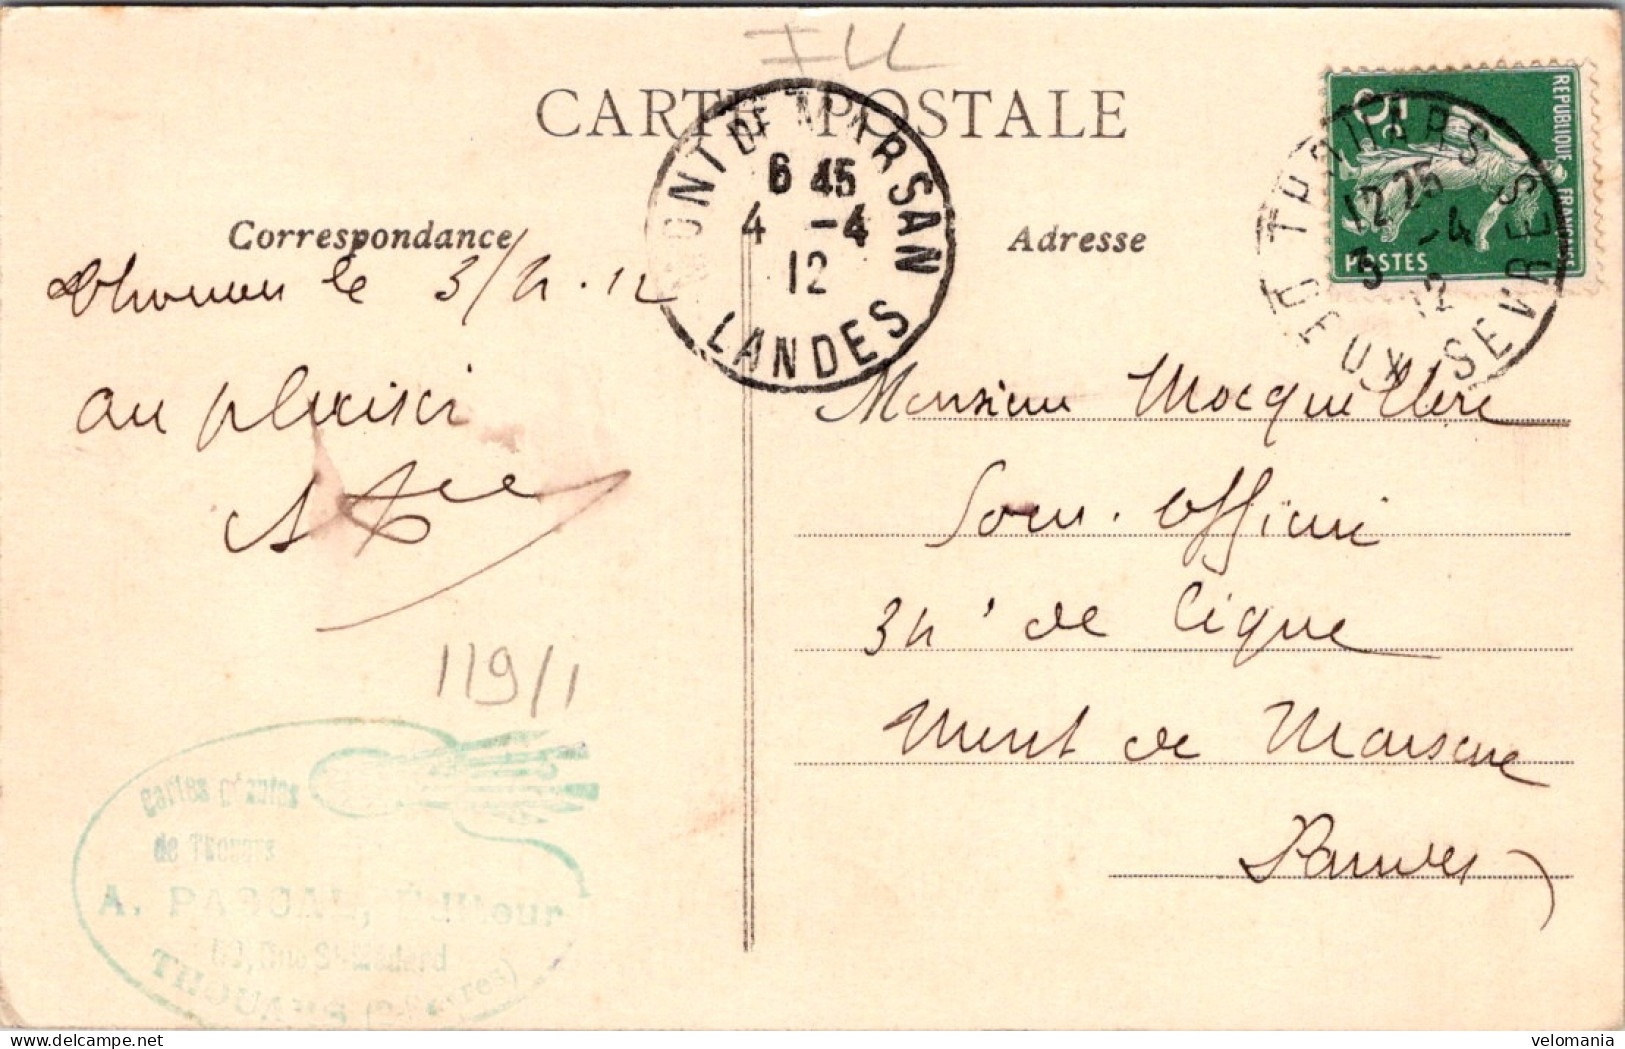 CARTE POSTALE
MONT DE MARSAN
6 45
4 -4
12
LANDES
REPUBLIQUE FRANÇAISE
5c
POSTES
THOUARS
12 25
3 -4
12
DEUX SEVRES
Correspondance
Adresse
Thouars le 3/4.12
au plaisir
119/1
Monsieur Mocquillere
Sous. Officier
34e de Ligne
Mont de Marsan
Landes
Cartes géantes
de Thouars
A. PASCAL, Éditour
THOUARS
velomania